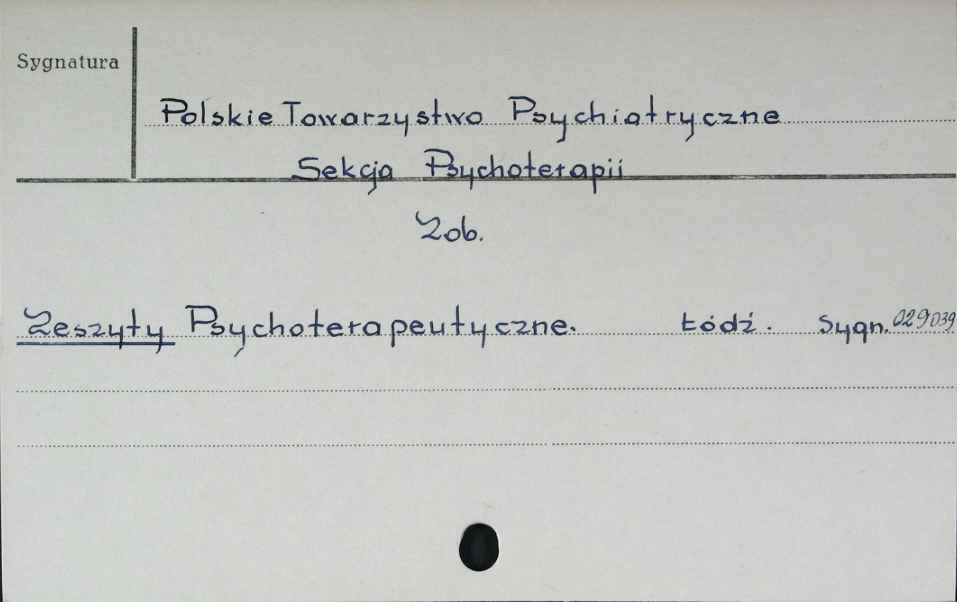 Sygnatura
Polskie Towarzystwo Psychiatryczne
Sekcja Psychoterapii
Zob.
Zeszyty Psychoterapeutyczne. Łódź. Sygn. 029039